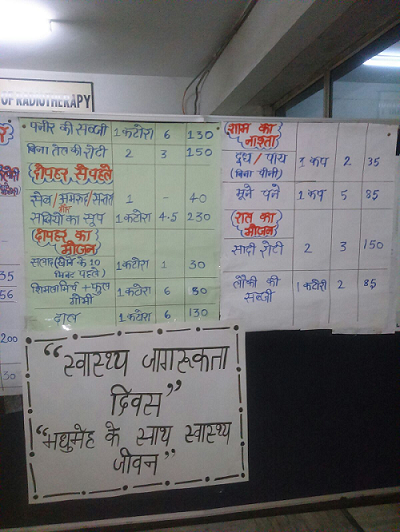 OF RADIOTHERAPY
पनीर की सब्जी 1 कटोरी 6 130
बिना तेल की रोटी 2 3 150
दोपहर से पहले
सेब/अमरूद/संतरा 1 - 40
सब्जियों का सूप 1 कटोरा 4.5 230
दोपहर का
भोजन
सलाद (खाने के 10
मिनट पहले) 1 कटोरा 1 30
शिमला मिर्च + फूल
गोभी 1 कटोरा 6 80
दाल 1 कटोरा 6 130
शाम का
नाश्ता
दूध / चाय
(बिना चीनी) 1 कप 2 35
भूने चने 1 कप 5 85
रात का
भोजन
सादी रोटी 2 3 150
लौकी की
सब्जी 1 कटोरा 2 85
35
56
200
30
“स्वास्थ्य जागरूकता
दिवस”
“मधुमेह के साथ स्वास्थ्य
जीवन”